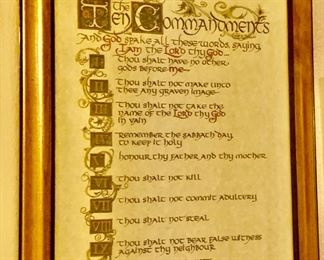 The
Ten Commandments
And God spake all these words, saying,
I am the Lord thy God—
I Thou shalt have no other
gods before me—
II Thou shalt not make unto
thee any graven image—
III Thou shalt not take the
name of the Lord thy God
in vain
IV Remember the sabbath day,
to keep it holy
V Honour thy father and thy mother
VI Thou shalt not kill
VII Thou shalt not commit adultery
VIII Thou shalt not steal
IX Thou shalt not bear false witness
against thy neighbour